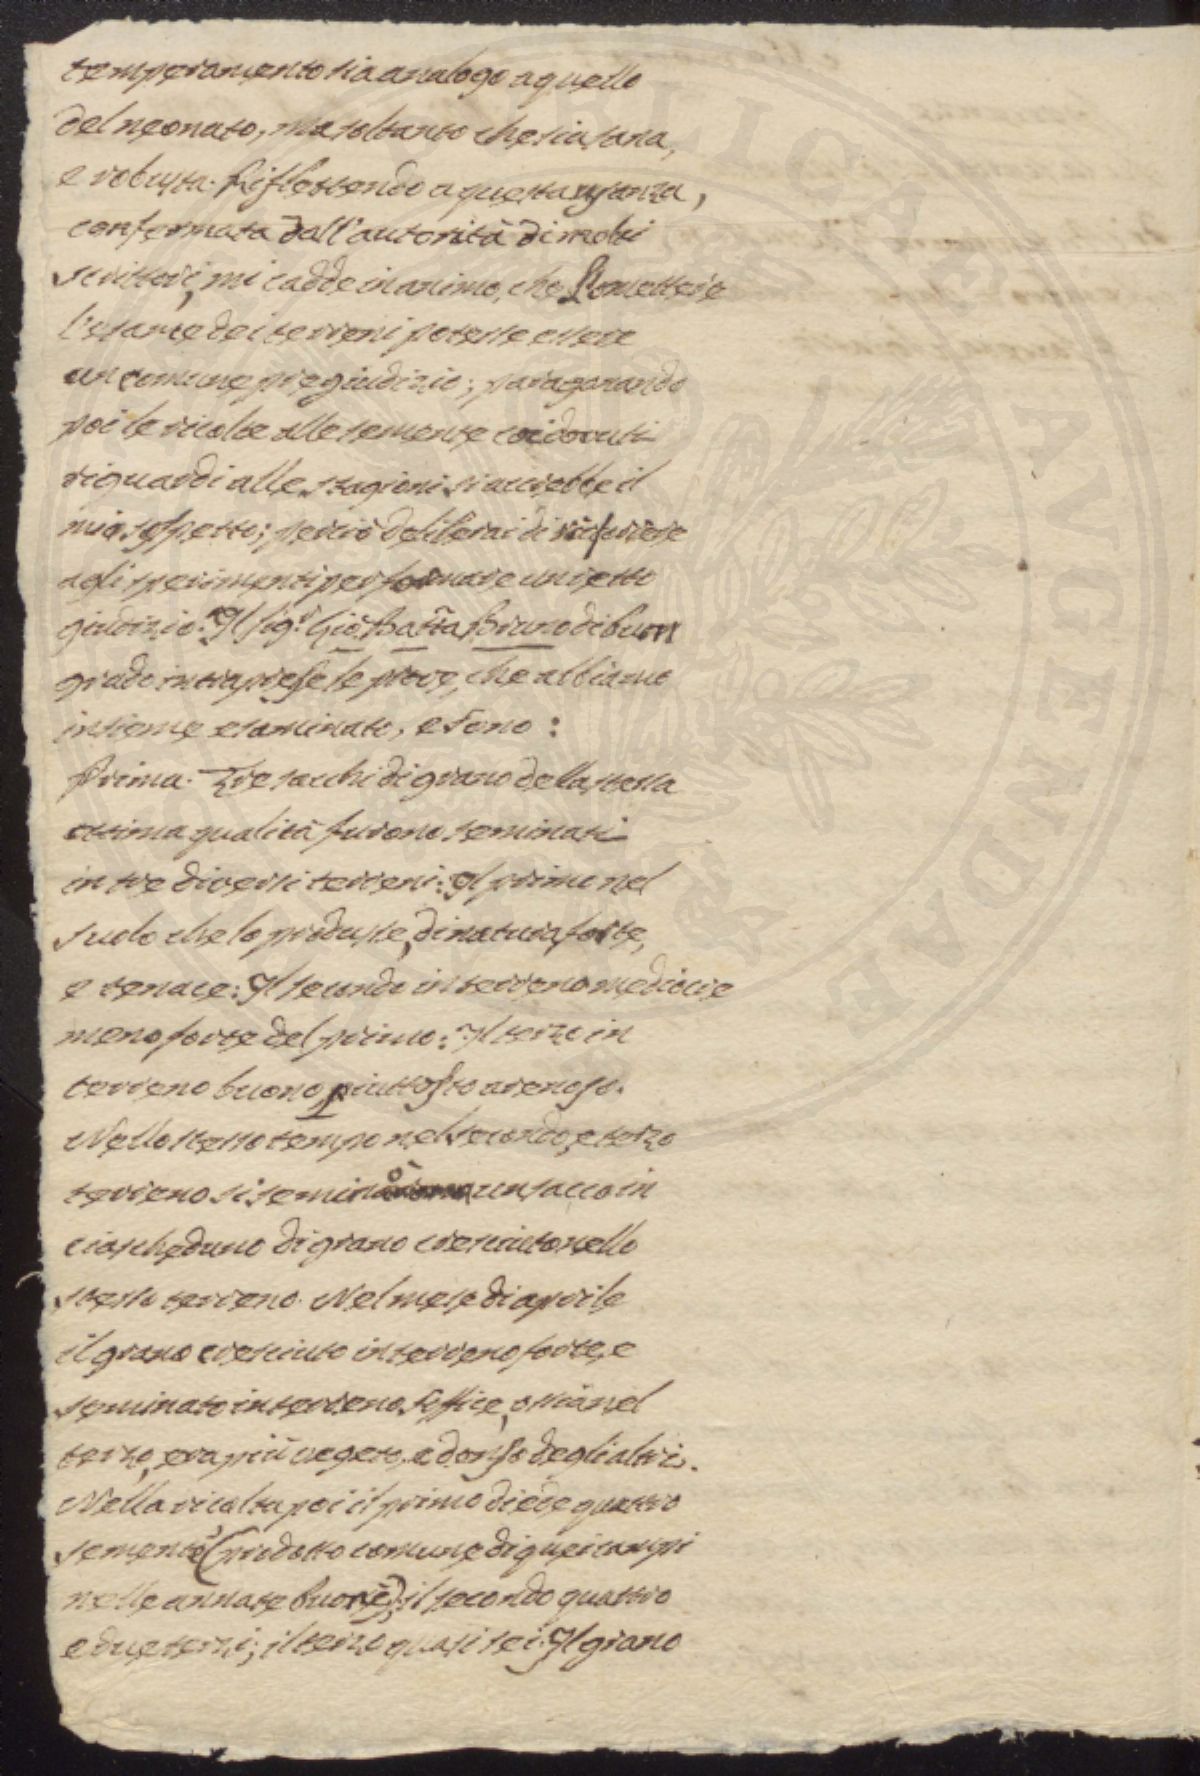 temperamento sia analogo a quello
del neonato, ma soltanto che sia sana,
e robusta. Riflettendo a questa usanza,
confermata dall'autorità di molti
scrittori, mi cadde in animo, che l'omettere
l'esame dei terreni potesse essere
un comune pregiudizio; paragonando
poi le ricolte alle semente coi dovuti
riguardi alle stagioni si accrebbe il
mio sospetto; perciò deliberai di ricorrere
agli sperimenti per formare un retto
giudizio. Il Sig.r Gio Batta Bruno di buon
grado intraprese le prove, che abbiamo
insieme esaminato, e sono:
Prima. Tre sacchi di grano della stessa
ottima qualità furono seminati
in tre diversi terreni: Il primo nel
suolo che lo produsse, di natura forte,
e tenace: Il secondo in terreno mediocre
meno forte del primo: Il terzo in
terreno buono piuttosto arenoso.
Nello stesso tempo nel secondo, e terzo
terreno si seminò un sacco in
ciascheduno di grano cresciuto nello
stesso terreno. Nel mese di aprile
il grano cresciuto in terreno forte, e
seminato in terreno soffice, ossia nel
terzo, era più vegeto, e denso degli altri.
Nella ricolta poi il primo diede quattro
sementi (prodotto comune di quei campi
nelle annate buone); il secondo quattro
e due terzi; il terzo quasi sei. Il grano
PUBLICAE AUGENDAE